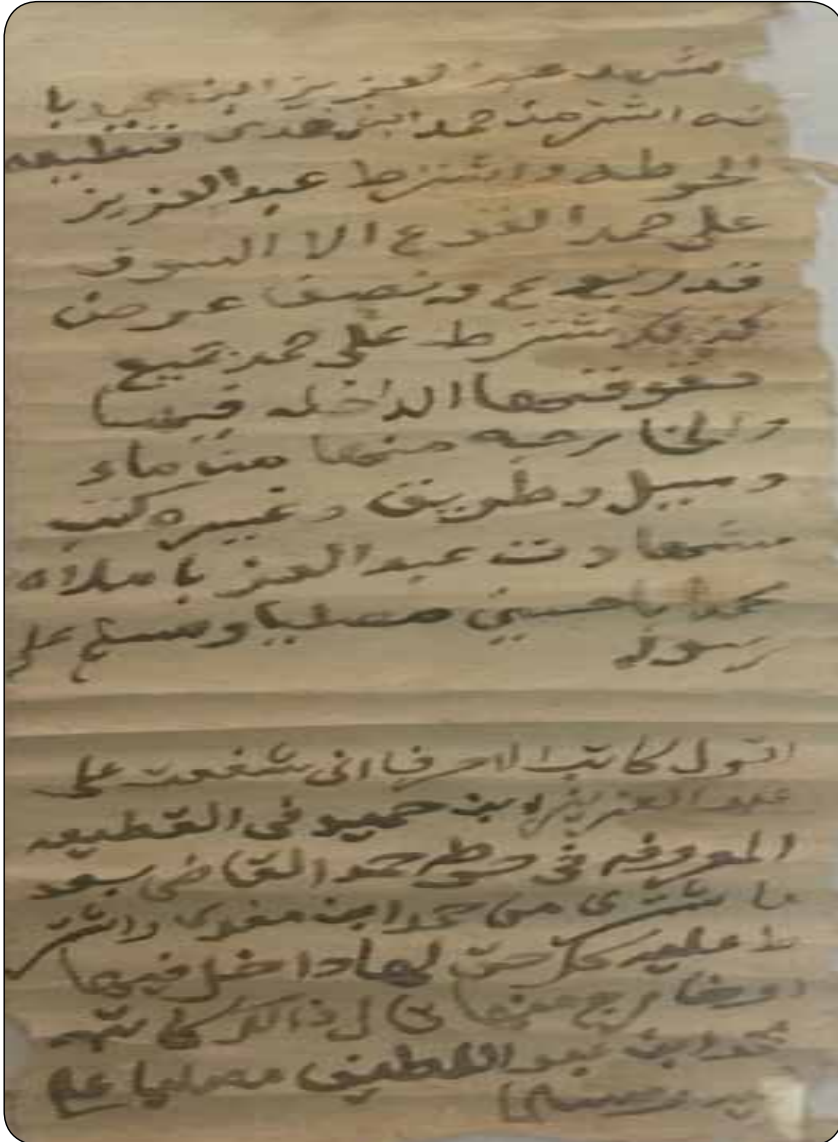 شهد عبد العزيز ابن با
نه اشتر من حمد ابن قطيعه
الحوطه واشترط عبد العزيز
على حمد الا السوق
ونصف عرض
نشترط على حمد جميع
حقوقتها الداخله فيها
والخارجه منها من ماء
وسبيل وطريق وغيره كتب
شهادت عبد العز باملاه
محمد باحسين مصليا ومسلم على
رسوله
اقول كاتب الاحرف اني شفعت على
عبد العزيز ابن حميد في القطيعه
المعروفه في حوطة حمد القاضي بعد
ما شترى من حمد ابن واشتر
ط عليه كل حق لها داخل فيها
وخارج منها قال ذالك
محمد ابن عبد اللطيف مصليا على
ومسلم